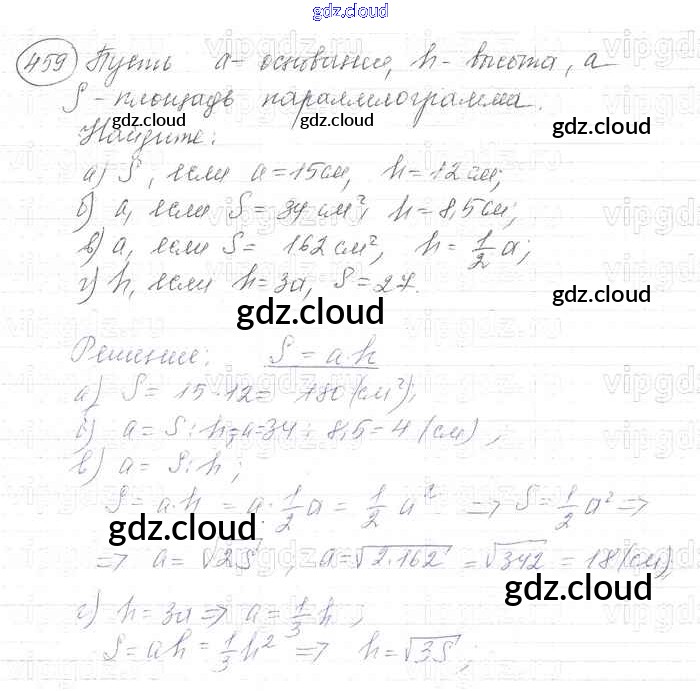 gdz.cloud
459 Пусть a - основание, h - высота, а
S - площадь параллелограмма.
gdz.cloud gdz.cloud gdz.cloud
Найдите:
а) S, если a = 15 см, h = 12 см;
б) a, если S = 34 см², h = 8,5 см;
в) a, если S = 162 см², h = 1/2 a;
г) h, если h = 3a, S = 27.
gdz.cloud gdz.cloud
Решение: S = a·h
а) S = 15·12 = 180 (см²);
б) a = S : h; a = 34 : 8,5 = 4 (см);
в) a = S : h;
S = a·h = a·1/2 a = 1/2 a² => S = 1/2 a² =>
gdz.cloud
=> a = √2S, a = √2·162 = √342 = 18 (см)
gdz.cloud
г) h = 3a => a = 1/3 h,
S = ah = 1/3 h² => h = √3S;